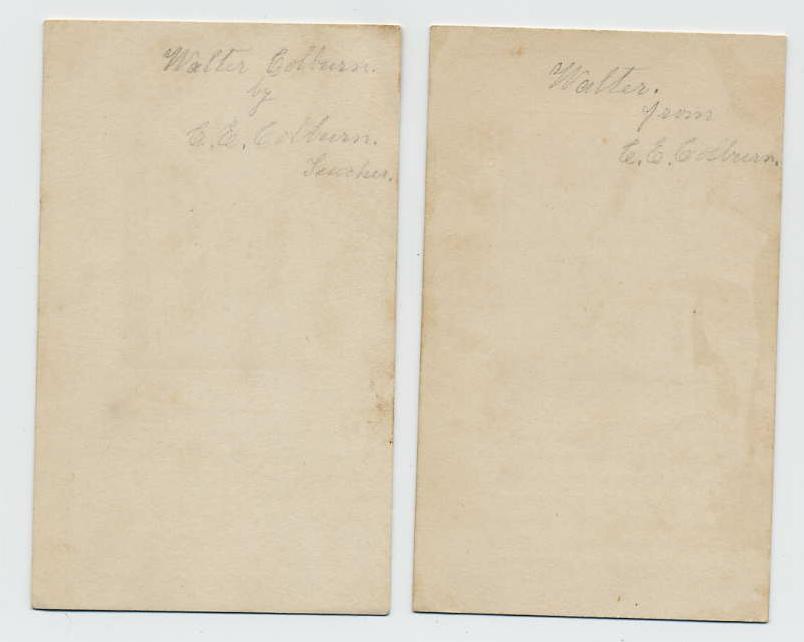 Walter Colburn.
by
C. E. Colburn.
Teacher.
Walter.
from
C. E. Colburn.